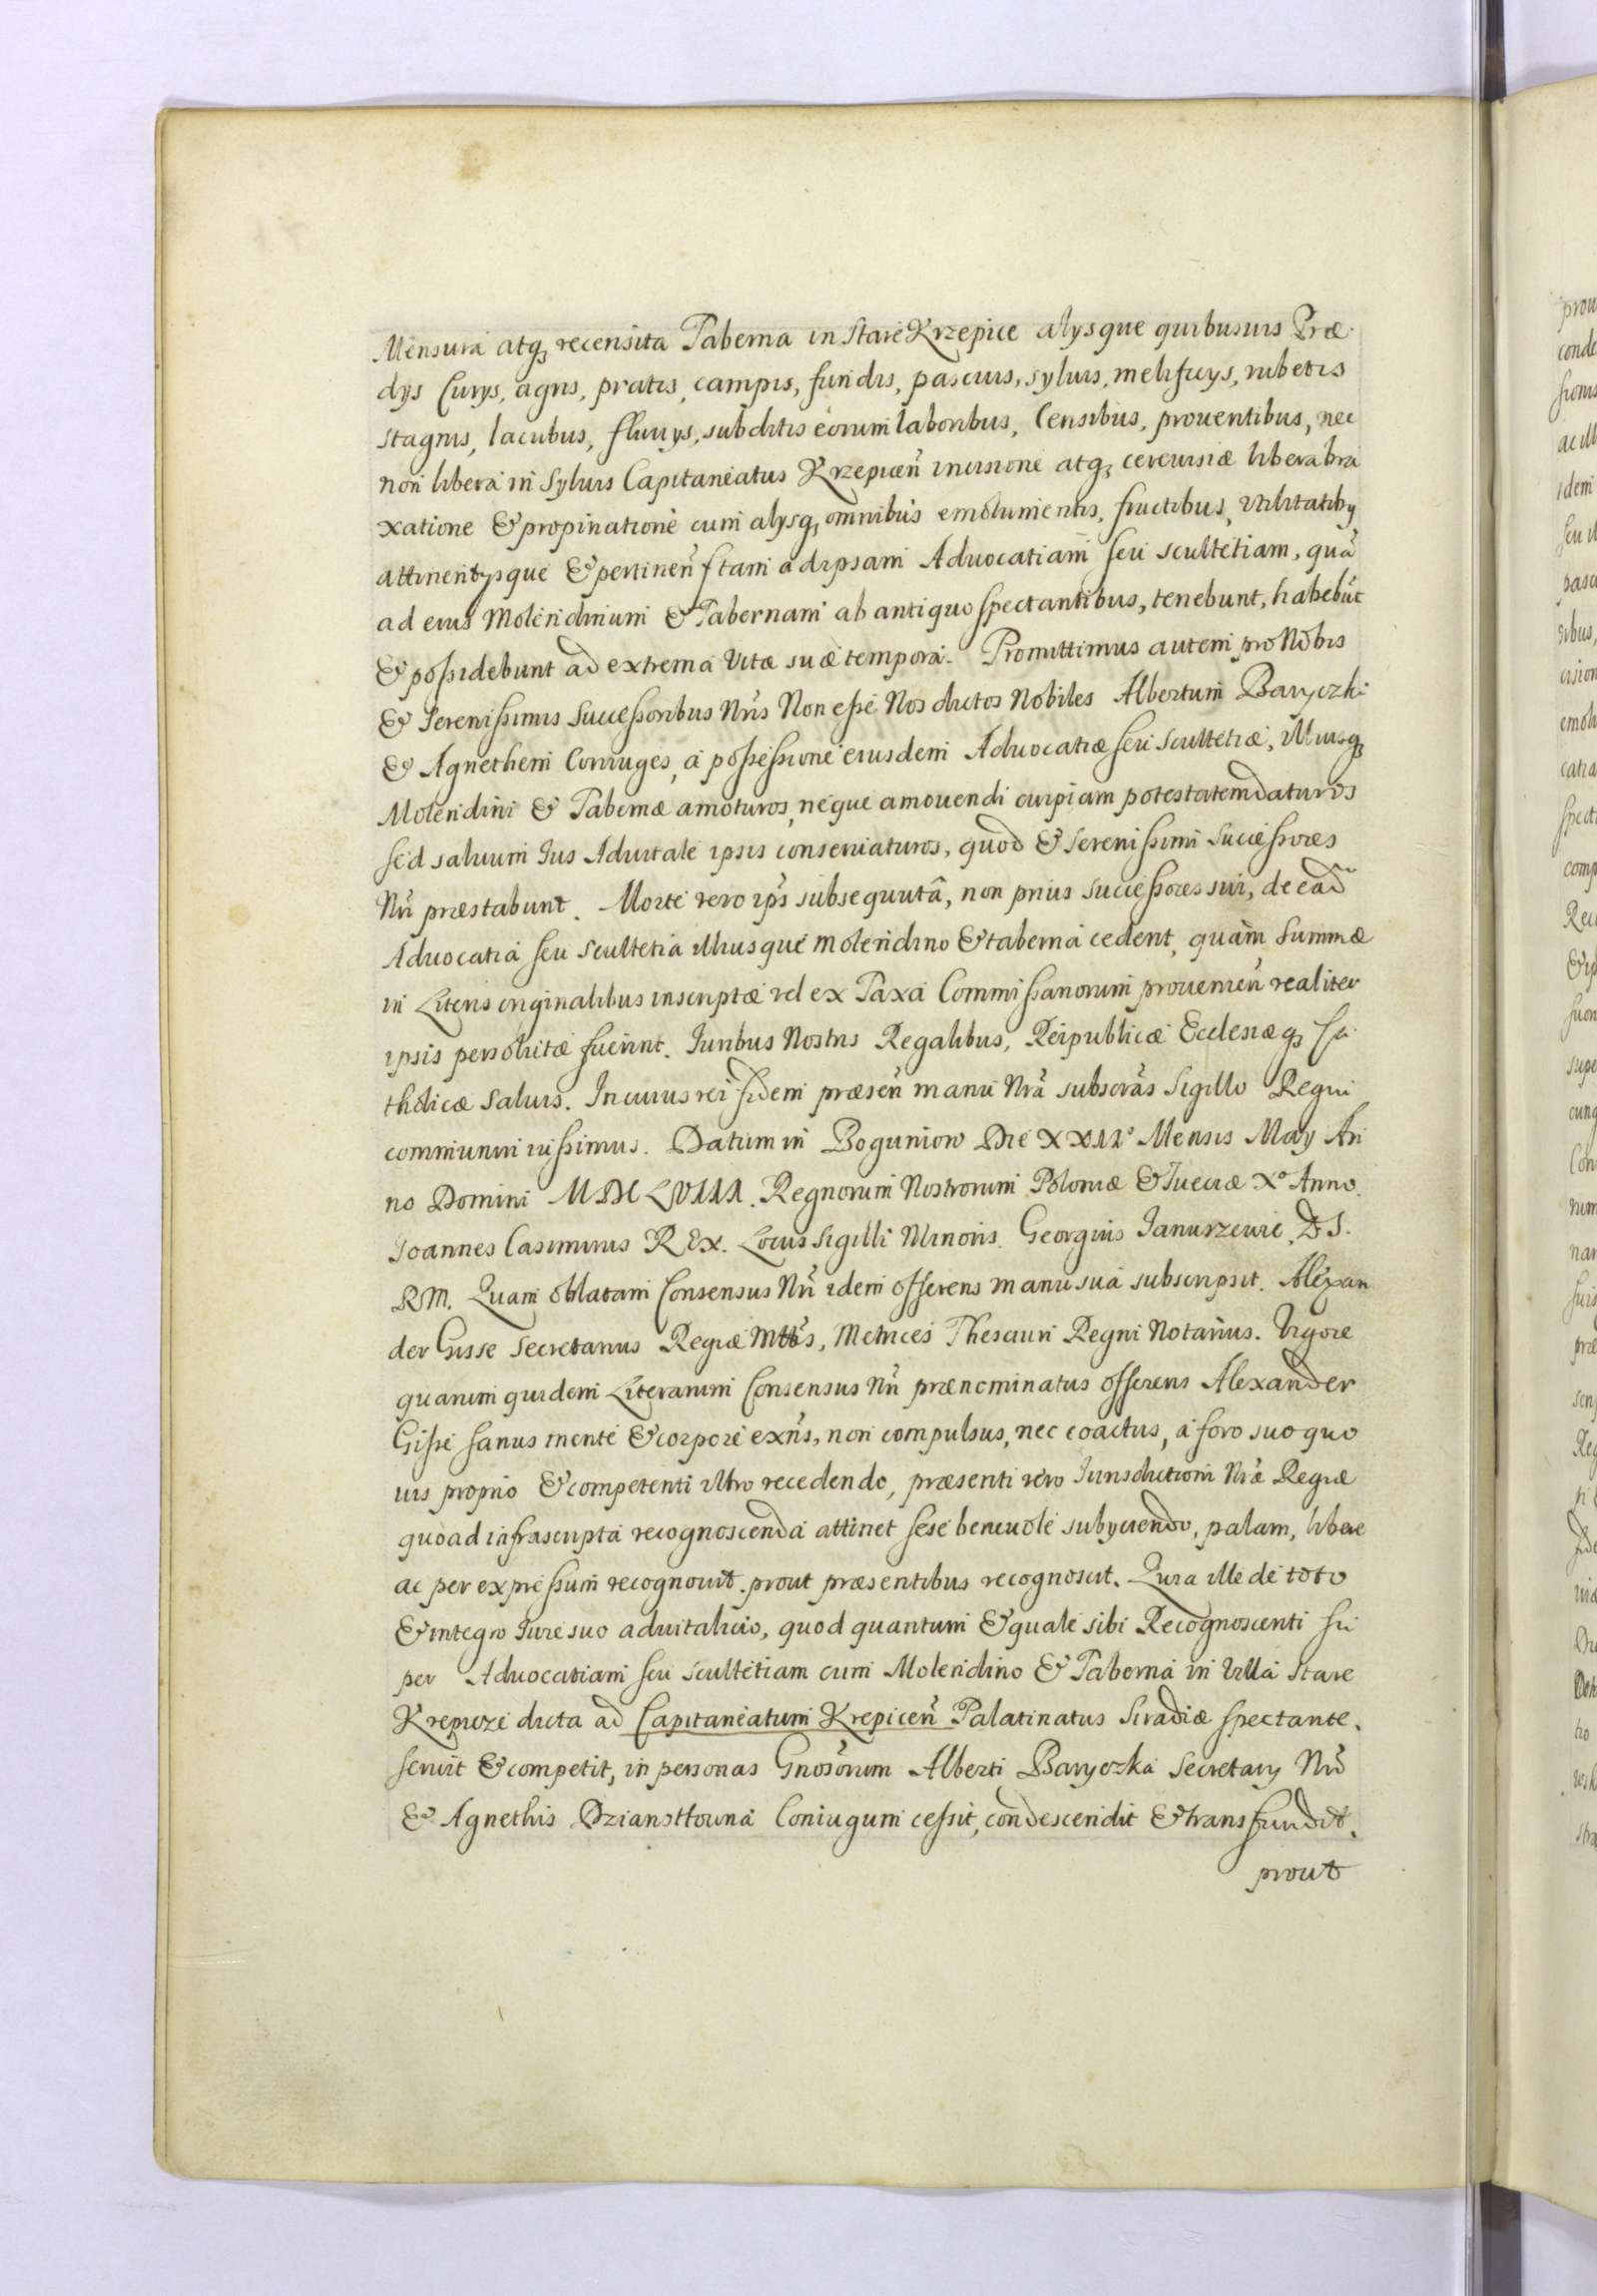 Mensura atq₃ recensita Taberna in Stare Krzepice alysque quibusuis Præ
dys Curys, agris, pratis, campis, fundis, pascuis, syluis, melificys, rubetis
stagnis, lacubus, fluuys, subditis eorum laboribus, Censibus, prouentibus, nec
non libera in Syluis Capitaneatus Krzepicen̄ incisione atq₃ cereuisiæ libera bra
xatione & propinatione cum alysq₃ omnibus emolumentis, fructibus, vtilitatiby
attinentysque & pertinen̄ s tam ad ipsam Aduocatiam seu scultetiam, quā
ad eius Molendinum & Tabernam ab antiquo spectantibus, tenebunt, habebūt
& possidebunt ad extrema vitæ suæ tempora. Promittimus autem pro Nobis
& Serenissimis Successoribus Nr̄is Non esse Nos dictos Nobiles Albertum Baryczki
& Agnethem Coniuges, a possessione eiusdem Aduocatiæ seu Scultetiæ, Illiusq₃
Molendini & Tabernæ amoturos, neque amouendi cuipiam potestatem daturos
sed saluum Ius Aduitale ipsis conseruaturos, quod & Serenissimi Successores
Nr̄i præstabunt. Morte vero ip̄s subsequutâ, non prius successores sui, de eād̄
Aduocatia seu Scultetia illiusque molendino & taberna cedent, quàm Summæ
in Literis originalibus inscriptæ vel ex Taxa Commissariorum prouenien̄ realiter
ipsis persolutæ fuerint. Iuribus Nostris Regalibus, Reipublicæ Ecclesiæq₃ Ca
tholicæ saluis. In cuius rei fidem præsen̄ manu Nrā subscrās Sigillo Regni
communiri iussimus. Datum in Bogunion Die XXVII° Mensis May An
no Domini MDCLVIII. Regnorum Nostrorum Poloniæ & Sueciæ X° Anno.
Joannes Casimirus REX. Locus Sigilli Minoris. Georgius Ianurzewic, D S.
RM. Quam oblatam Consensus Nr̄i idem offerens manu sua subscripsit. Alexan
der Gisse Secretarius Regiæ Mttīs, Metrices Thesauri Regni Notarius. Vigore
quarum quidem Literarum Consensus Nr̄i prænominatus offerens Alexander
Gisse sanus mente & corpore exn̄s, non compulsus, nec coactus, a foro suo quo
uis proprio & competenti vltro recedendo, præsenti vero Iurisdictioni Nræ Regiæ
quoad infrascripta recognoscenda attinet sese beneuole subyciendo, palam, libere
ac per expressum recognouit. prout præsentibus recognoscit. Quia ille de toto
& integro Iure suo aduitalicio, quod quantum & quale sibi Recognoscenti su
per Aduocatiam seu Scultetiam cum Molendino & Taberna in Villa Stare
Krepicze dicta ad Capitaneatum Krepicen̄ Palatinatus Siradiæ spectante.
seruit & competit, in personas Gnosōrum Alberti Baryczka Secretary Nrī
& Agnethis Dzianottowna Coniugum cessit, condescendit & transfundit.
prout